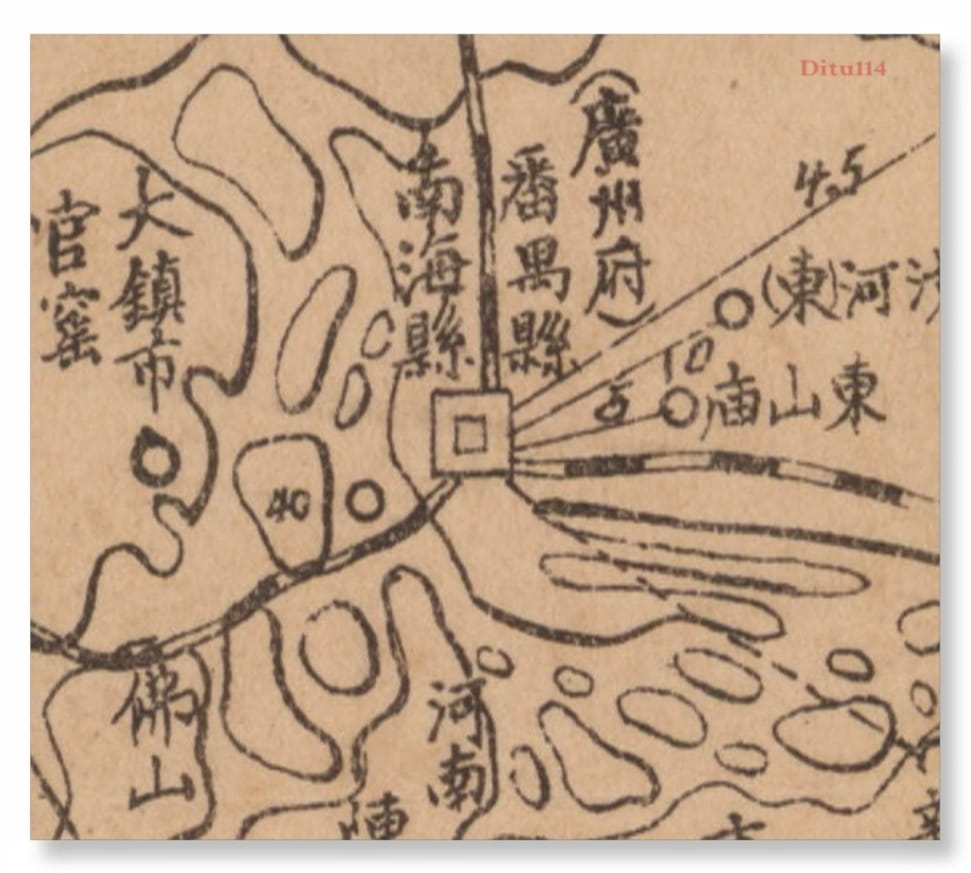 Ditu114
(廣州府)
番禺縣
南海縣
大鎮市
官窰
4.5
(東)河
10
5
東山庙
40
佛山
河南